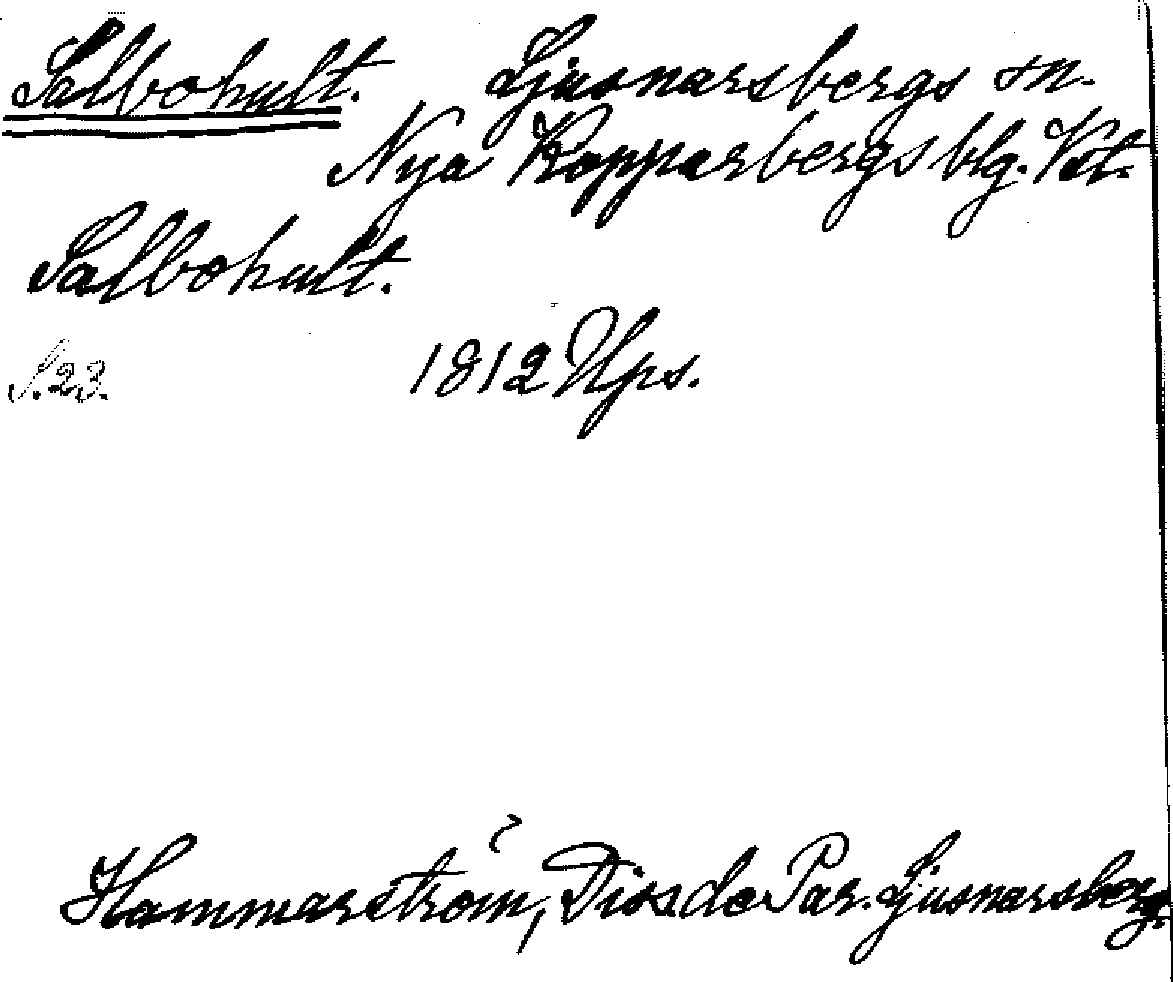 Salbohult. Ljusnarsbergs sn.
Nya Kopparbergs blg. Vstl.
Salbohult.
S. 23. 1812 Ups.
Hammarström, Diss. de Par. Ljusnarsberg.